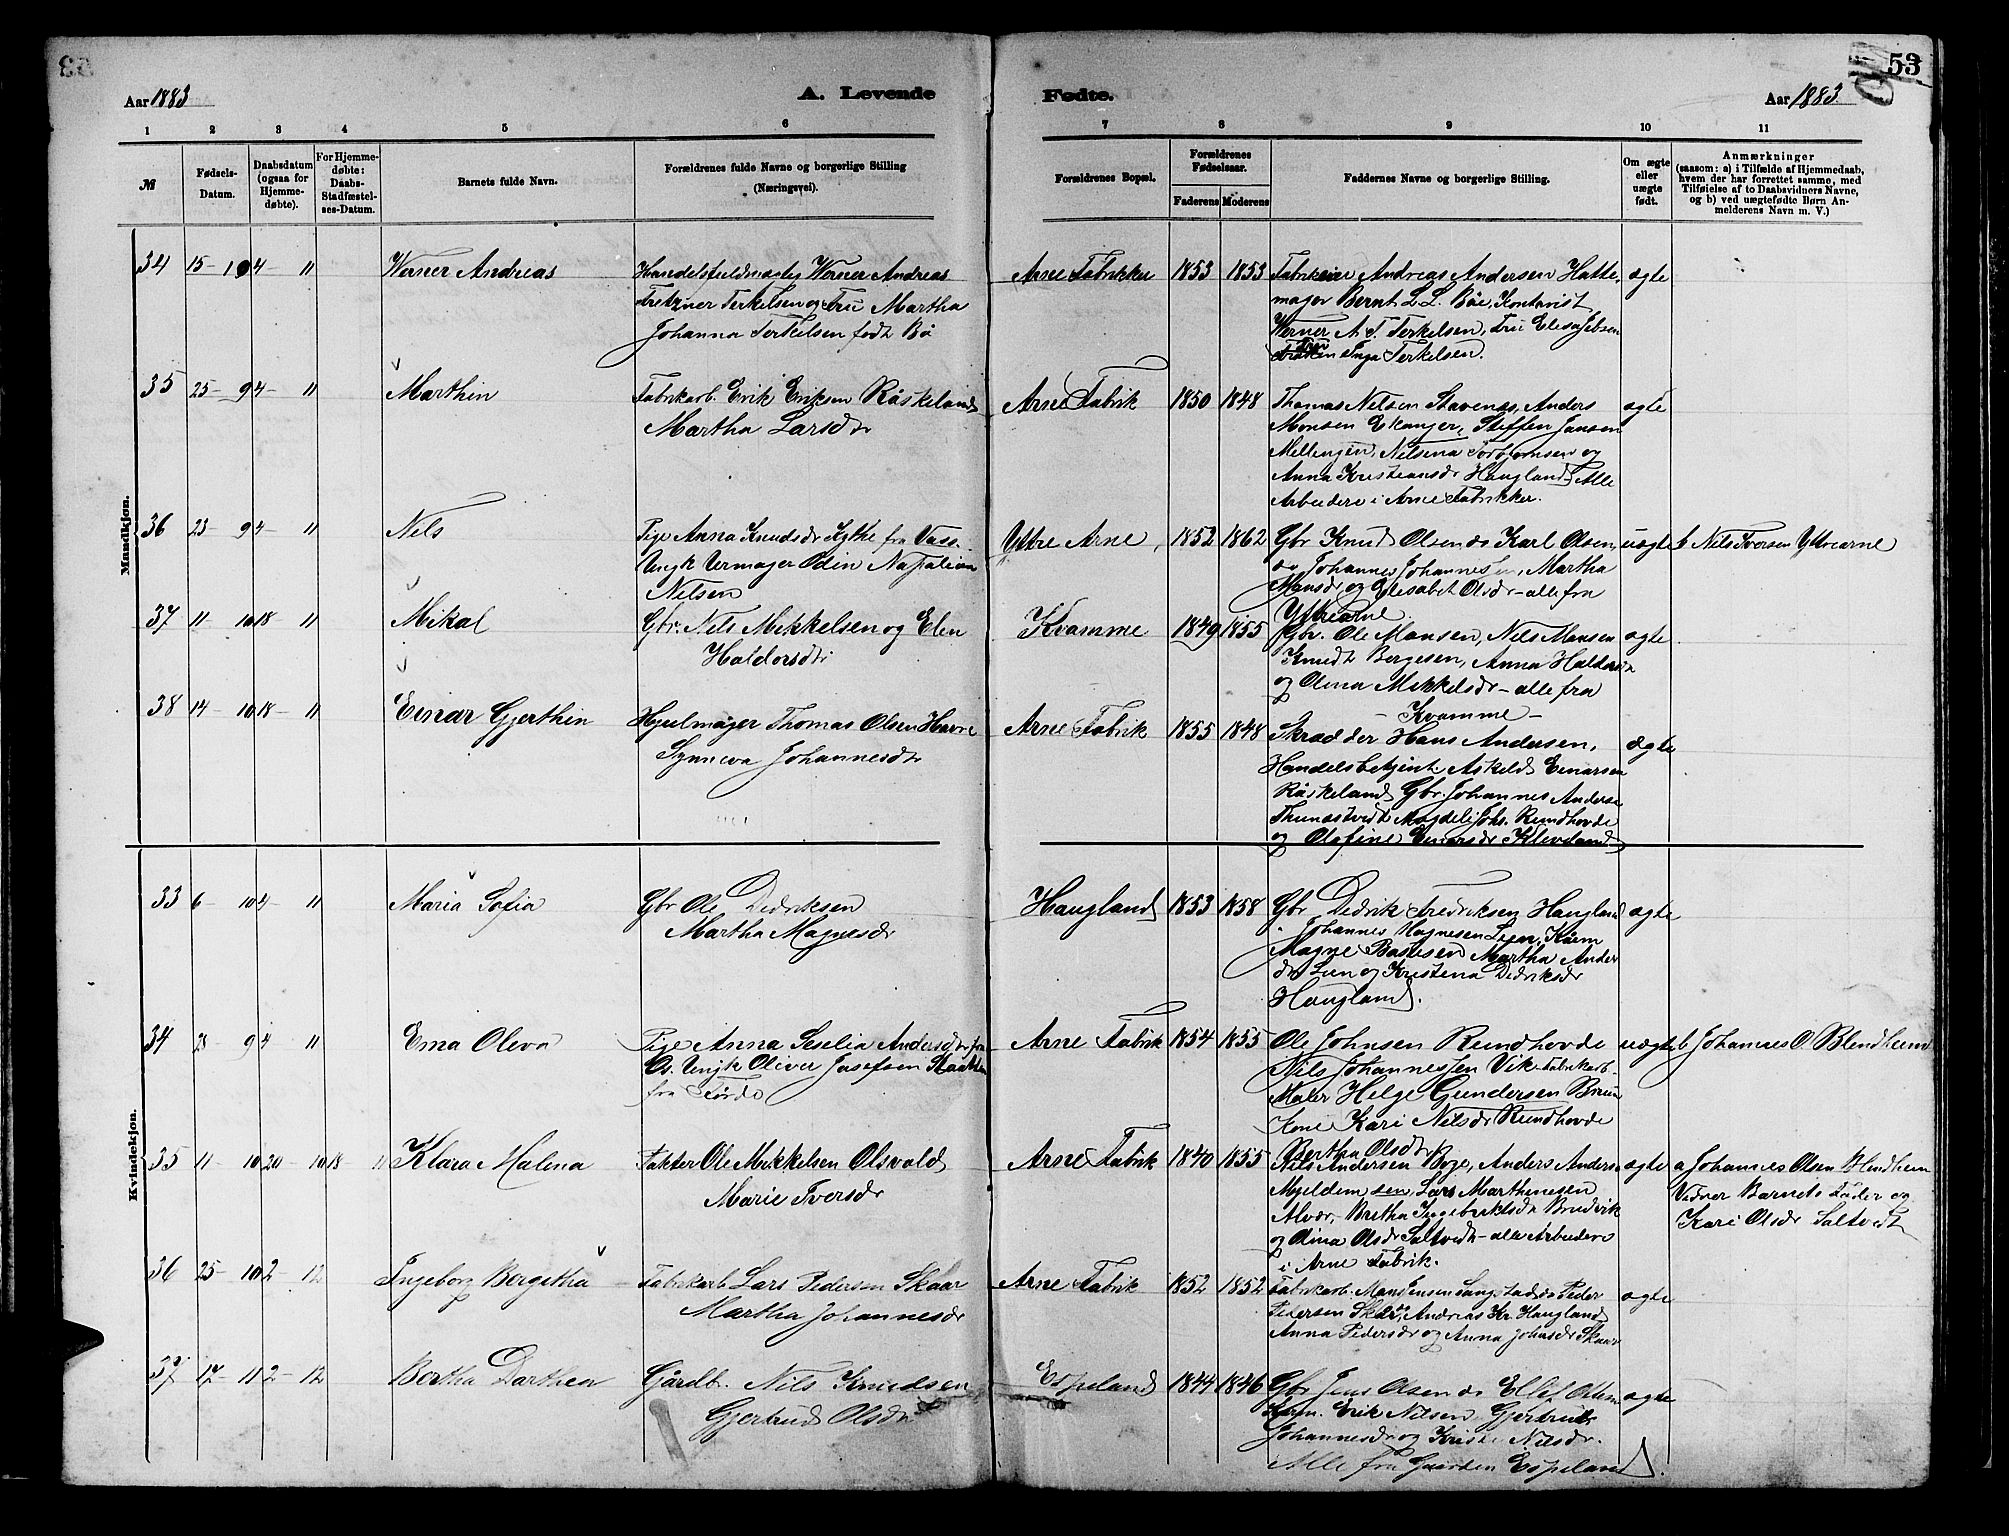 53
Aar 1883
A. Levende
Fødte.
Aar 1883
1 2 3 4 5 6 7 8 9 10 11
№
Fødsels-
Datum.
Daabsdatum
(ogsaa for
Hjemme-
døbte).
For Hjemme-
døbte:
Daabs-
Stadfæstel-
ses-Datum.
Barnets fulde Navn.
Forældrenes fulde Navne og borgerlige Stilling
(Næringsvei).
Forældrenes Bopæl.
Forældrenes
Fødselsaar.
Faderens Moderens
Faddernes Navne og borgerlige Stilling.
Om ægte
eller
uægte
født.
Anmærkninger
(saasom: a) i Tilfælde af Hjemmedaab,
hvem der har forrettet samme, med
Tilføielse af to Daabsvidners Navne,
og b) ved uægtefødte Børn An-
melderens Navn m. V.)
Mandkjøn.
34 15- 4- " Werner Andreas
Handelsfuldmægtig Werner Andreas
Fretzner Terkelsen og Fru Martha
Johanna Terkelsen født Bö
Arne Fabrikker 1853 1853
Fabrikeier Andreas Andersen Hatte-
mager Bernt L. L. Böe, Kontorist
Werner A. F. Terkelsen, Fru Elisa Jebsen
Inga Terkelsen.
ægte
35 25- 9 4- " Marthin
Fabrikarb. Erik Eriksen Råskeland
Martha Larsdtr
Arne Fabrik 1850 1848
Thomas Nelsen Stavenes, Anders
Monsen Ekanger, Steffen Jansen
Mellingen, Nelsina Torbjornsen og
Anna Kristiansdr Haugland. Alle
Arbeidere i Arne Fabrikker.
ægte
36 23- 9 4- " Nels
Pige Anna Knudsdr Kythe fra Voss.
Ungk Urmager Odin Napoleon
Nelsen
Yttre Arne, 1852 1862
Gbr Knud Olsen do Karl Olsen,
do Johannes Johannessen, Martha
Monsdr og Elisabet Olsdr - alle fra
Yttrearne
uægte
b Nels Iversen Yttrearne
37 11 10 18- " Mikal
Gbr. Nels Mikkelsen og Elen
Haldorsdtr
Kvamme 1849 1855
Gbr. Ole Monsen, Nels Monsen
Knudt Borgesen, Anna Haldorsdr
og Olena Mikkelsdr - alle fra
- Kvamme -
ægte
38 14- 10 18- " Einar Gjerthin
Hjulmager Thomas Olsen Havre
Synneva Johannesdtr
Arne Fabrik 1855 1848
Skrædder Hans Andersen,
Handelsbetjent. Askeld Einarsen
Råskeland Gbr. Johannes Anderse
Thunestvedt Magdeli Johs. Rundhovde
og Olefine Einarsdr Kleveland
ægte
Kvindekjøn.
33 6- 10 4- " Maria Sofia
Gbr Ole Dedriksen
Martha Magnesdr
Haugland 1853 1858
Gbr Dedrik Fredriksen Haugland
Johannes Magnesen Leen, Kårm
Magne Bastesen Martha Ander
dr Leen og Kristena Dedriksdr
Haugland.
ægte
34 23- 9 4- " Ema Oleva
Pige Anna Seselia Andersdtr fra
Os. Ungk Oliver Josefsen
fra Förde
Arne Fabrik 1854 1855
Ole Johnsen Rundhovde
Nils Johannessen Vik Fabrikarb.
Maler Helge Gundersen Bruun
Kone Kari Nelsdr Rundhovde
Bertha Olsdtr
uægte
b Johannes O. Blendheim
35 11- 10 20- 10 18 " Klara Malena
Fakter Ole Mikkelsen Olsvold
Marie Iversdr
Arne Fabrik 1840 1855
Nils Andersen Boge, Anders Anders
Mjeldem sen, Lars Marthinesen
Alvær, Bretha Ingebrektsdr Brudvik
og Olina Olsdr Saltvedt - alle Arbeidere
i Arne Fabrik.
ægte
a Johannes Olsen Blendheim
Vidner Barnets Fader og
Kari Olsdr Saltvedt
36 25- 10 2- 12 Ingeborg Bergitha
Fabrikarb Lars Pedersen Skaar
Martha Johannesdr
Arne Fabrik 1852 1852
Fabrikarb. Mons Jensen Peder
Pedersen Skaar, Andreas Kr. Haugland
Anna Pedersdr og Anna Johnsdr Skaar
ægte
37 17- 11 2- 12 Bertha Darthea
Gårdb. Nils Knudsen
Gjertrud Olsdr
Espeland 1844 1846
Gbr Jens Olsen do Ellef Olsen
Kårm. Erik Nilsen Gjertrud
Johannesdr og Kriste Nilsdr.
Alle fra Gaarden Espeland.
ægte